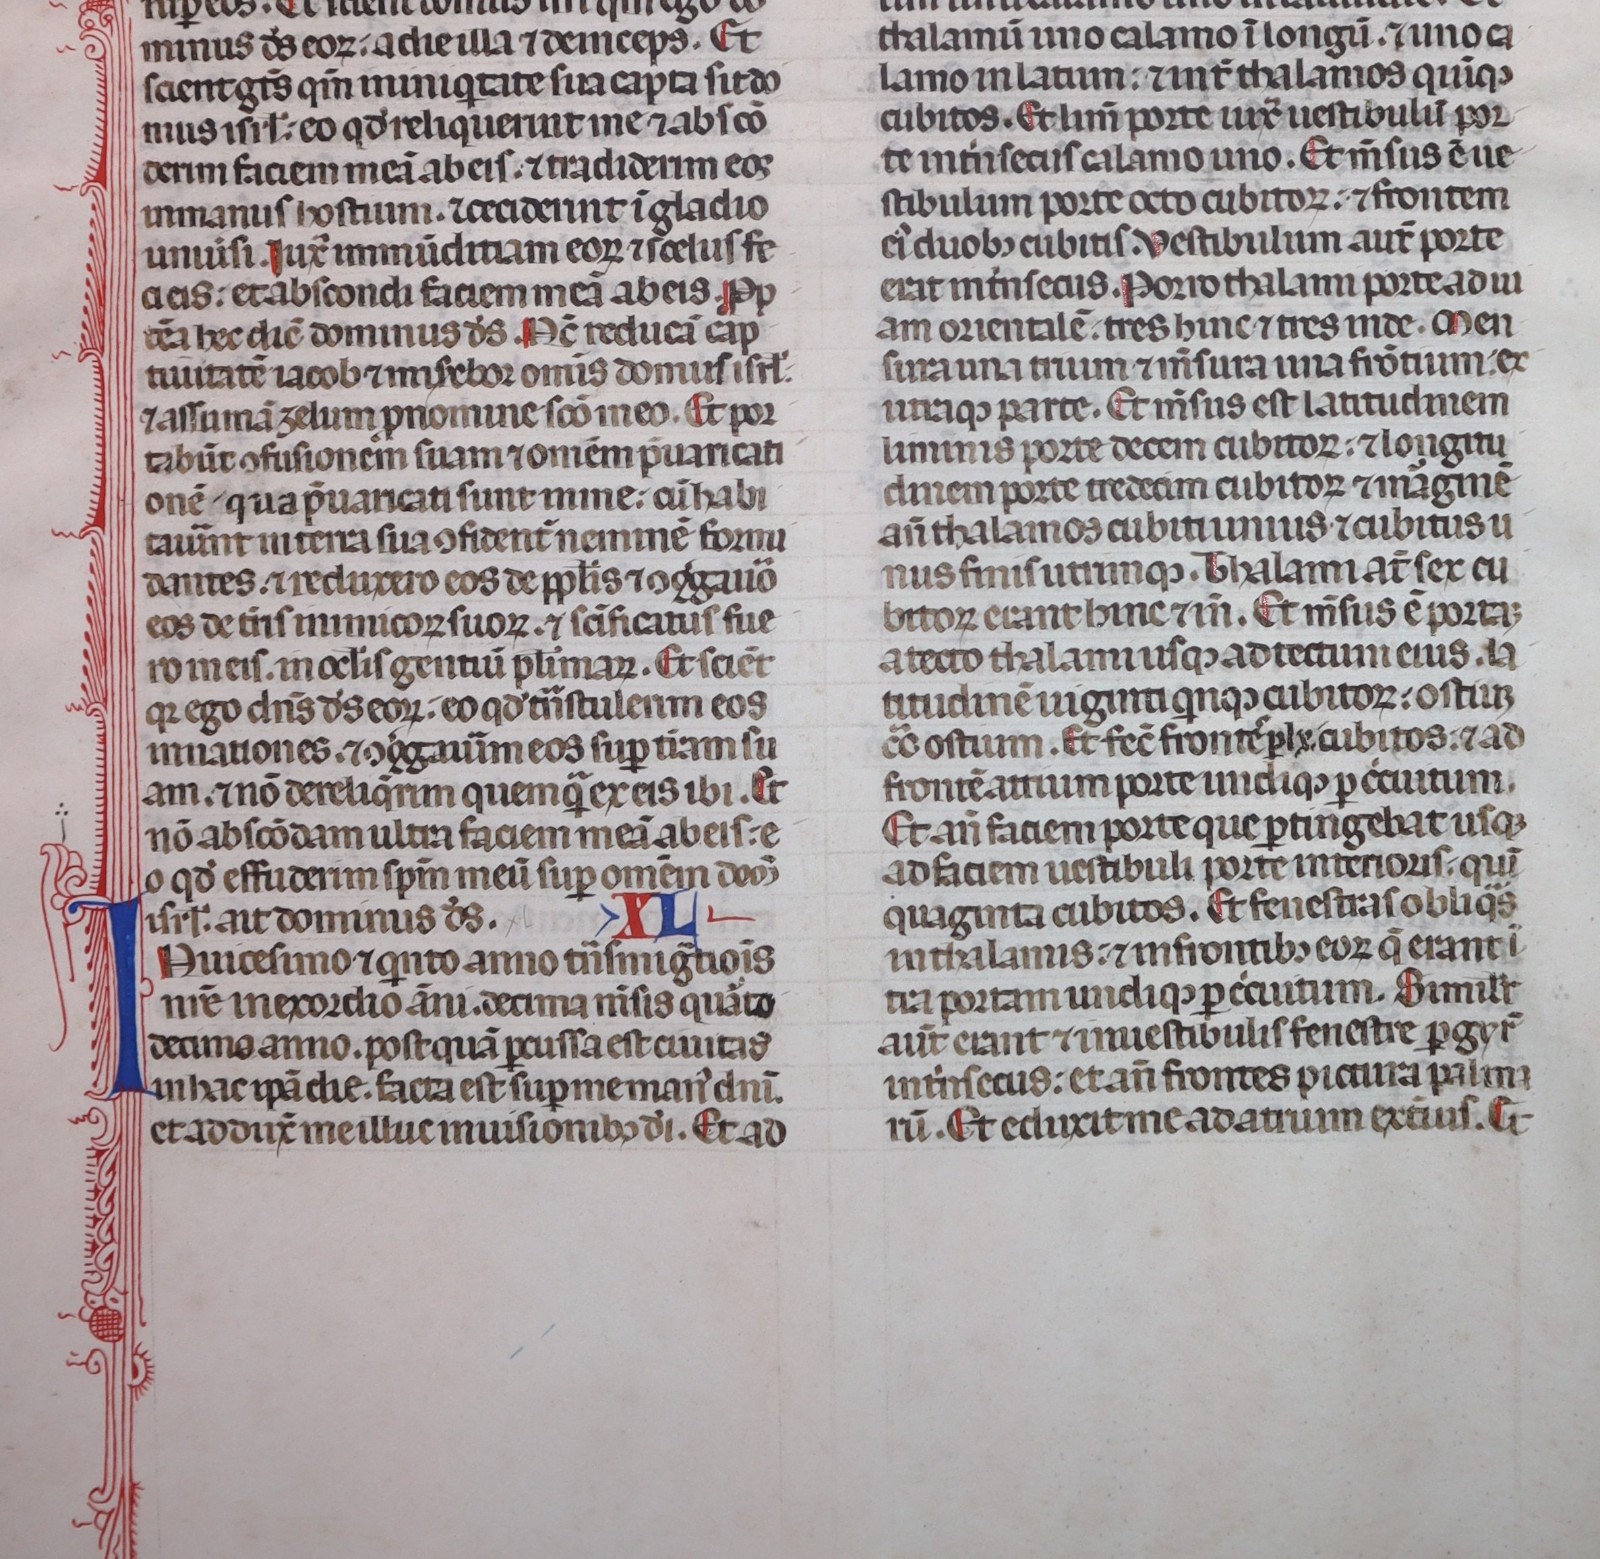 minus d̄s eoꝝ: a die illa ⁊ deinceps. Et
scient gn̄tes qm̄ in iniq̇tate sua capta sit do
mus isrł: eo qd̛ reliquerint me ⁊ absco͂
derim faciem mea͂ ab eis: ⁊ tradiderim eos
in manus hostium. ⁊ ceciderint i͂ gladio
uniuersi. Iux̄ inmu͂ditiam eoꝝ ⁊ scelus fe
ci eis: et abscondi faciem mea͂ ab eis. Pp
tēa hec dic̄ dominus d̄s. Nc̄ reduca͂ cap
tiuitate͂ iacob ⁊ miserebor omīs domus isrł:
⁊ assuma͂ zelum ꝓ nomine sc̄o meo. Et por
tabūt ꝯfusionem suam ⁊ omēm p̄uaricati
one͂ qua p̄uaricati sunt in me: cu͂ habi
tauīnt in terra sua ꝯfident̄ nemine͂ formi
dantes. ⁊ reduxero eos de pplīs ⁊ ꝯḡgauo
eos de tīris inimicoꝝ suoꝝ. ⁊ sc̄ificatus fue
ro in eis. in oclīs gentiu͂ plimaꝝ. Et scie͂t
qꝛ ego dn̄s d̄s eoꝝ: eo qd̛ tr̄astulerim eos
in nationes. ⁊ ꝯḡgauīm eos suꝑ tr̄am su
am. ⁊ no͂ dereliq̄rim quemq̄ ex eis ibi. Et
no͂ absco͂dam ultra faciem mea͂ ab eis: e
o qd̛ effuderim sp̄m meu͂ suꝑ omēm domū
isrł. ait dominus d̄s. XL
N uicesimo ⁊ q̇nto anno trn̄smig̃tiois
nr̄e in exordio ānni. decima mēsis quarto
decimo anno. postqua͂ ꝑcussa est ciuitas
in hac ip̄a die. facta est suꝑ me man᾽ dn̄i.
et addux̄ me illuc in uisionibꝫ d̄i. Et ad
thalamu͂ uno calamo i͂ longu͂. ⁊ uno ca
lamo in latum: ⁊ int̄ thalamos quiq̄ꝫ
cubitos. Et lim̄ porte iux̄ uestibulu͂ por
te int̄nsecus calamo uno. Et m̄sus ē ue
stibulum porte octo cubitoꝝ: ⁊ frontem
ei᾽ duobꝫ cubitis. Vestibulum aut̄ porte
erat int̄nsecus. Porro thalami porte ad ui
am orientale͂. tres hinc ⁊ tres inde. Men
sura una trium ⁊ m̄sura una fro͂tium. ex
utraqꝫ parte. Et m̄sus est latitudinem
liminis porte decem cubitoꝝ: ⁊ longitu
dinem porte tredecim cubitoꝝ ⁊ mãgine͂
an̄ thalamos cubiti unius. ⁊ cubitus u
nus finis utrimqꝫ. Thalami at̄ sex cu
bitoꝝ erant hinc ⁊ in̄. Et m̄sus ē porta͂
a tecto thalami usqꝫ ad tectum eius. la
titudine͂ uiginti q̇nqꝫ cubitoꝝ: ostiu͂
co͂ ostium. Et fec̄ fronte͂ ꝑ lx. cubitos: ⁊ ad
fronte͂ atrium porte undiqꝫ ꝑ c̄cuitum.
Et an̄ faciem porte que ꝑtingebat usqꝫ
ad faciem uestibuli porte interioris: qui͂
quaginta cubitos. Et fenestras obliq̄s
in thalamis: ⁊ in frontibꝫ eoꝝ q̄ erant i͂
tra portam undiqꝫ ꝑ c̄cuitum. Similit̄
aut̄ erant ⁊ in uestibulis fenestre ꝑ gyr̄
int̄nsecus: et an̄ frontes pictura palma
ru͂. Et eduxit me ad atrium ext̄ius. Et